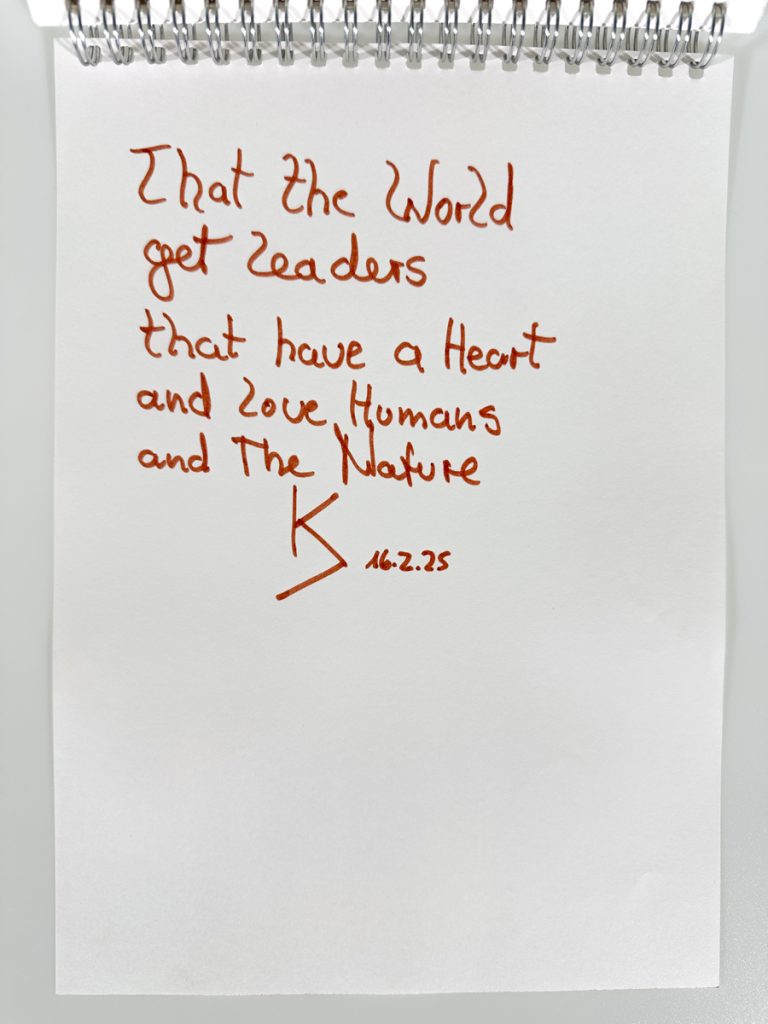 That the World
get Leaders
that have a Heart
and Love Humans
and The Nature
KS 16.2.25